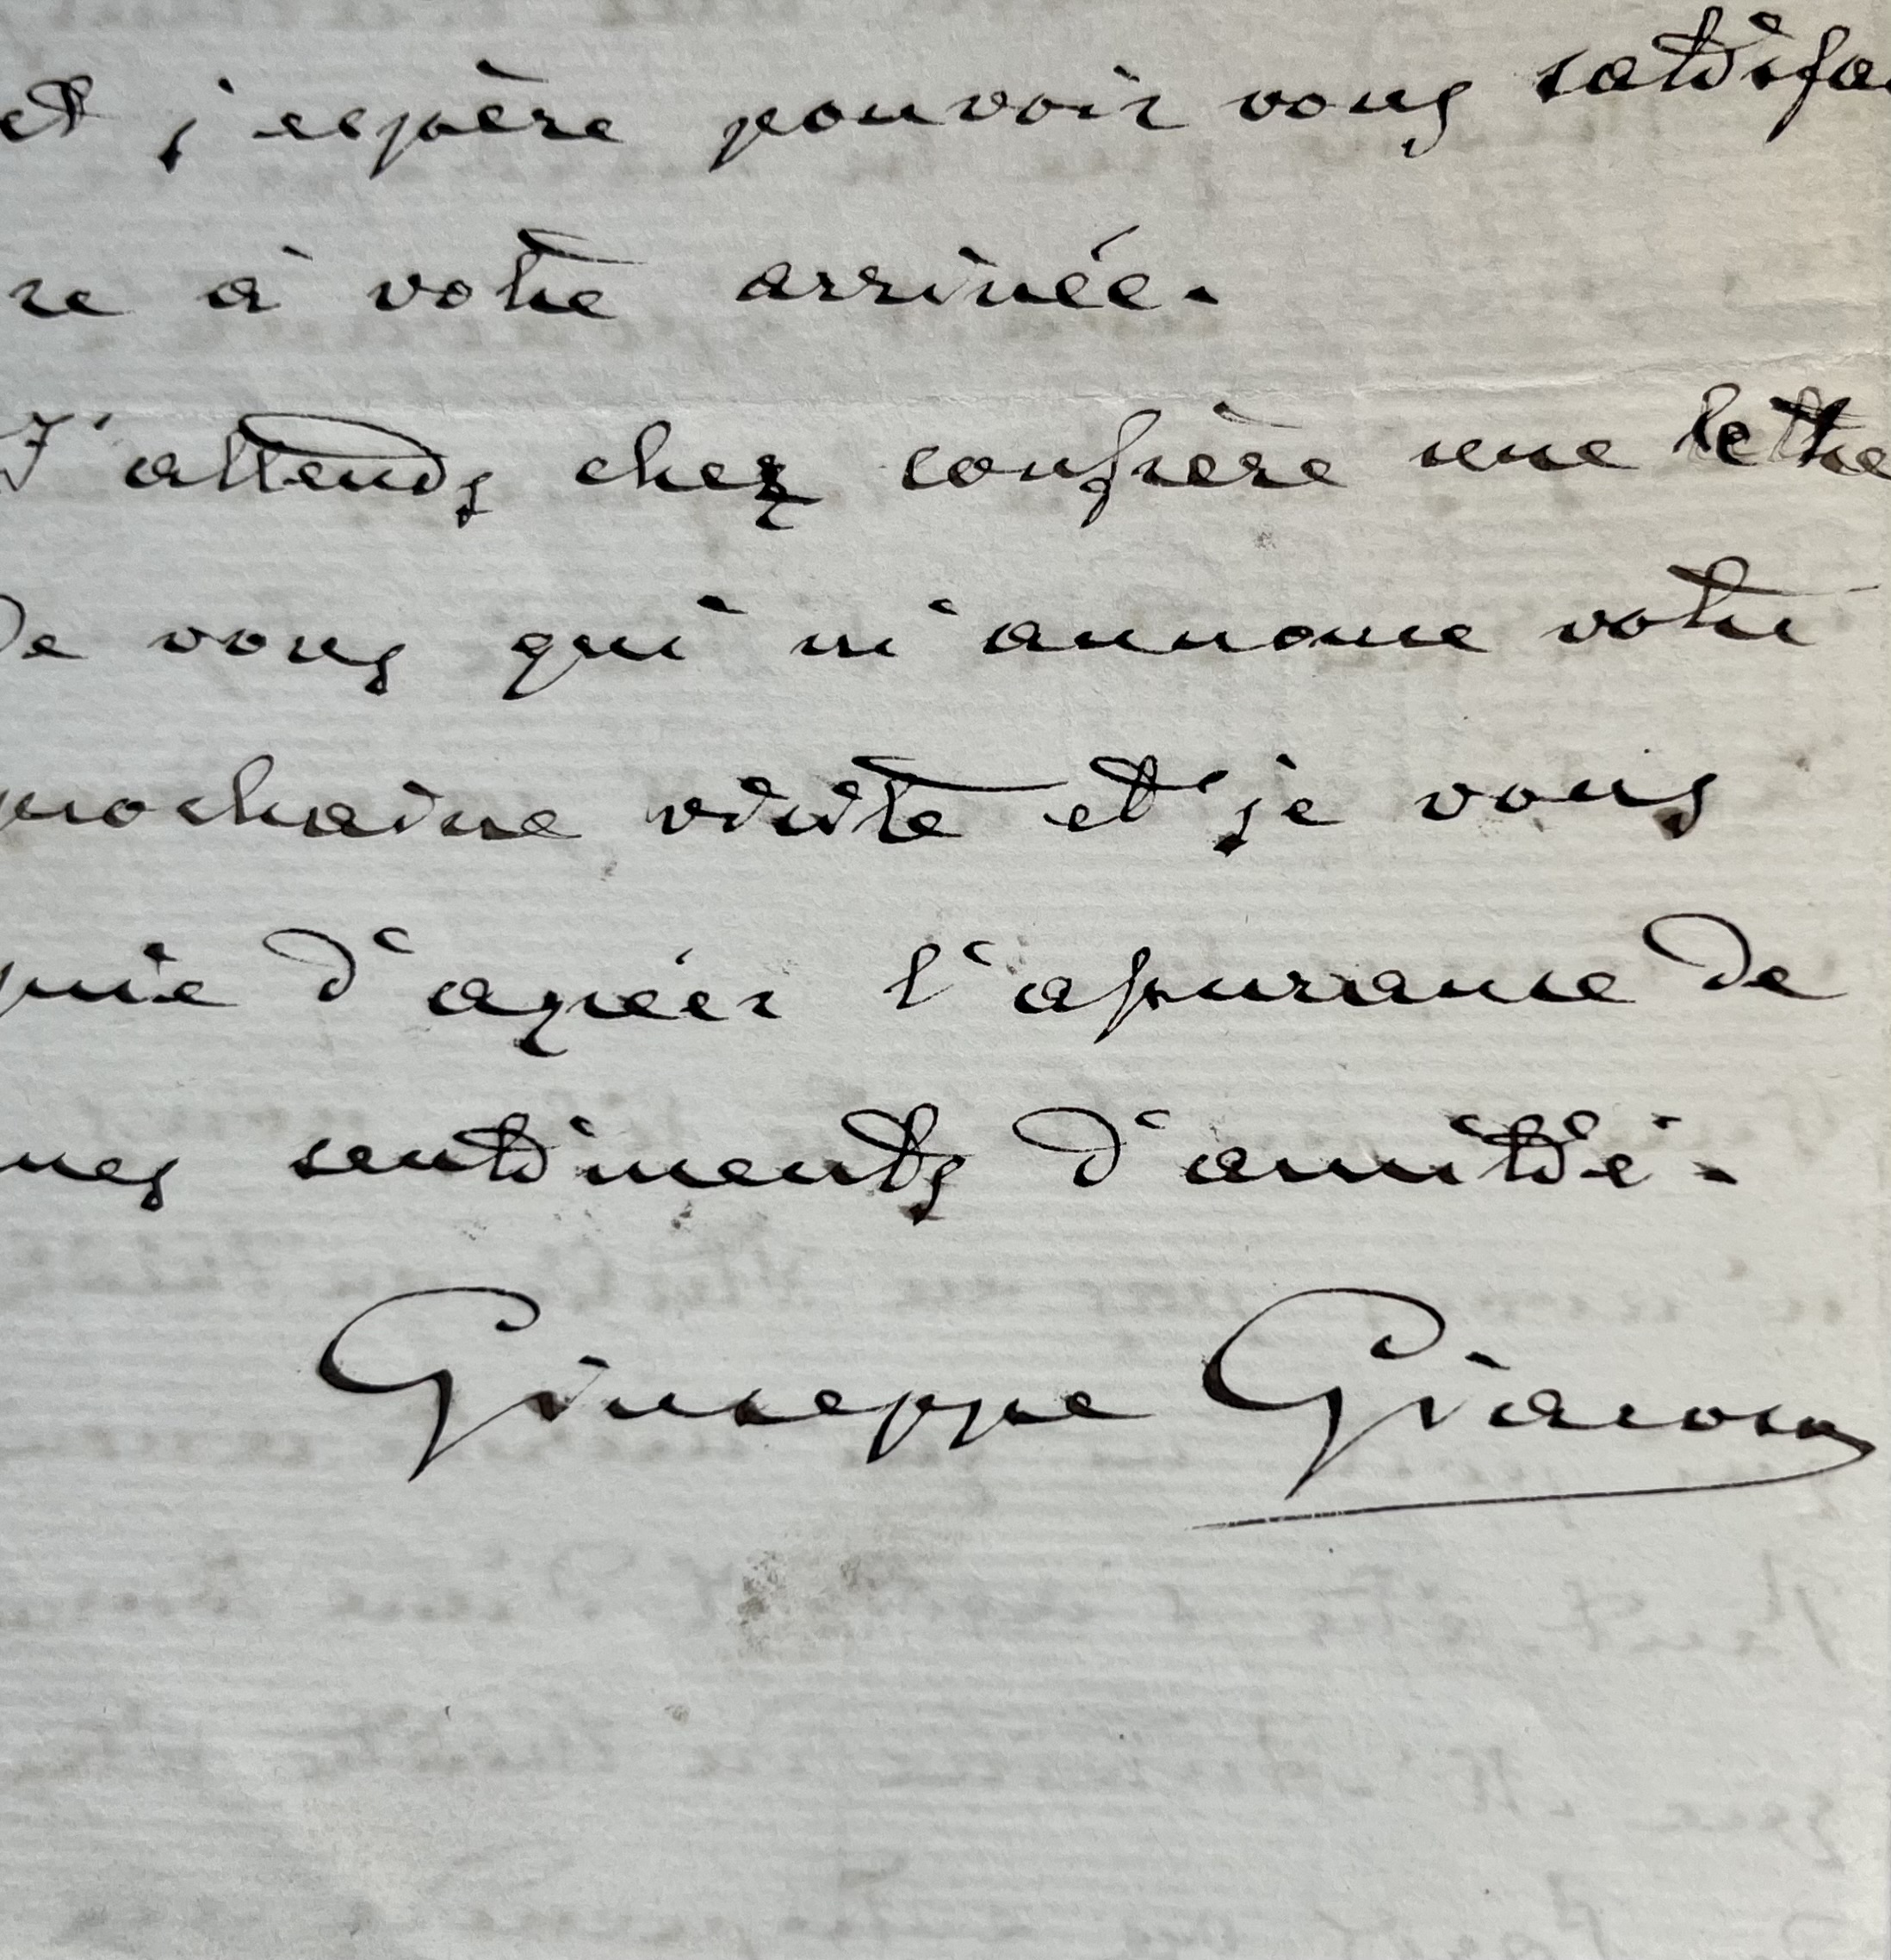 et j'espère pouvoir vous satisfai
re à votre arrivée.
J'attends chez confrère une lettre
de vous qui m'annonce votre
prochaine visite et je vous
prie d'agréer l'assurance de
mes sentiments d'amitié.
Giuseppe Giacosa